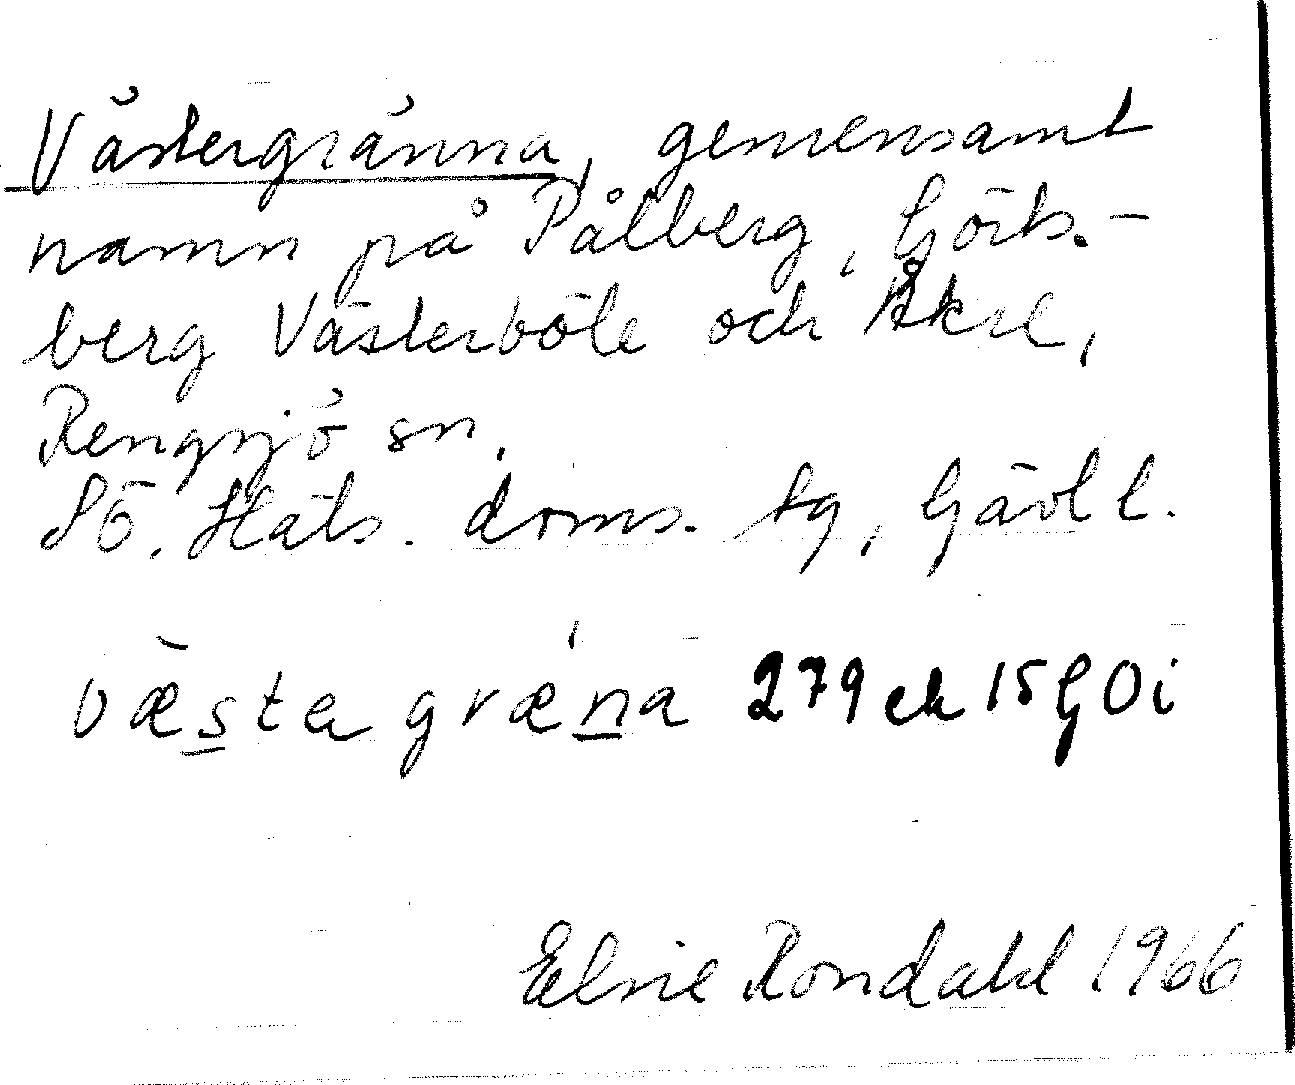 Västergränna, gemensamt
namn på Pålberg, Görts.-
berg Västerböle och Åkre,
Rengsjö sn.
SÖ. Häls. doms. tg, Gävl l.
væsta græ´na 279 ek 15 G Oi
Elsie Rondahl 1966